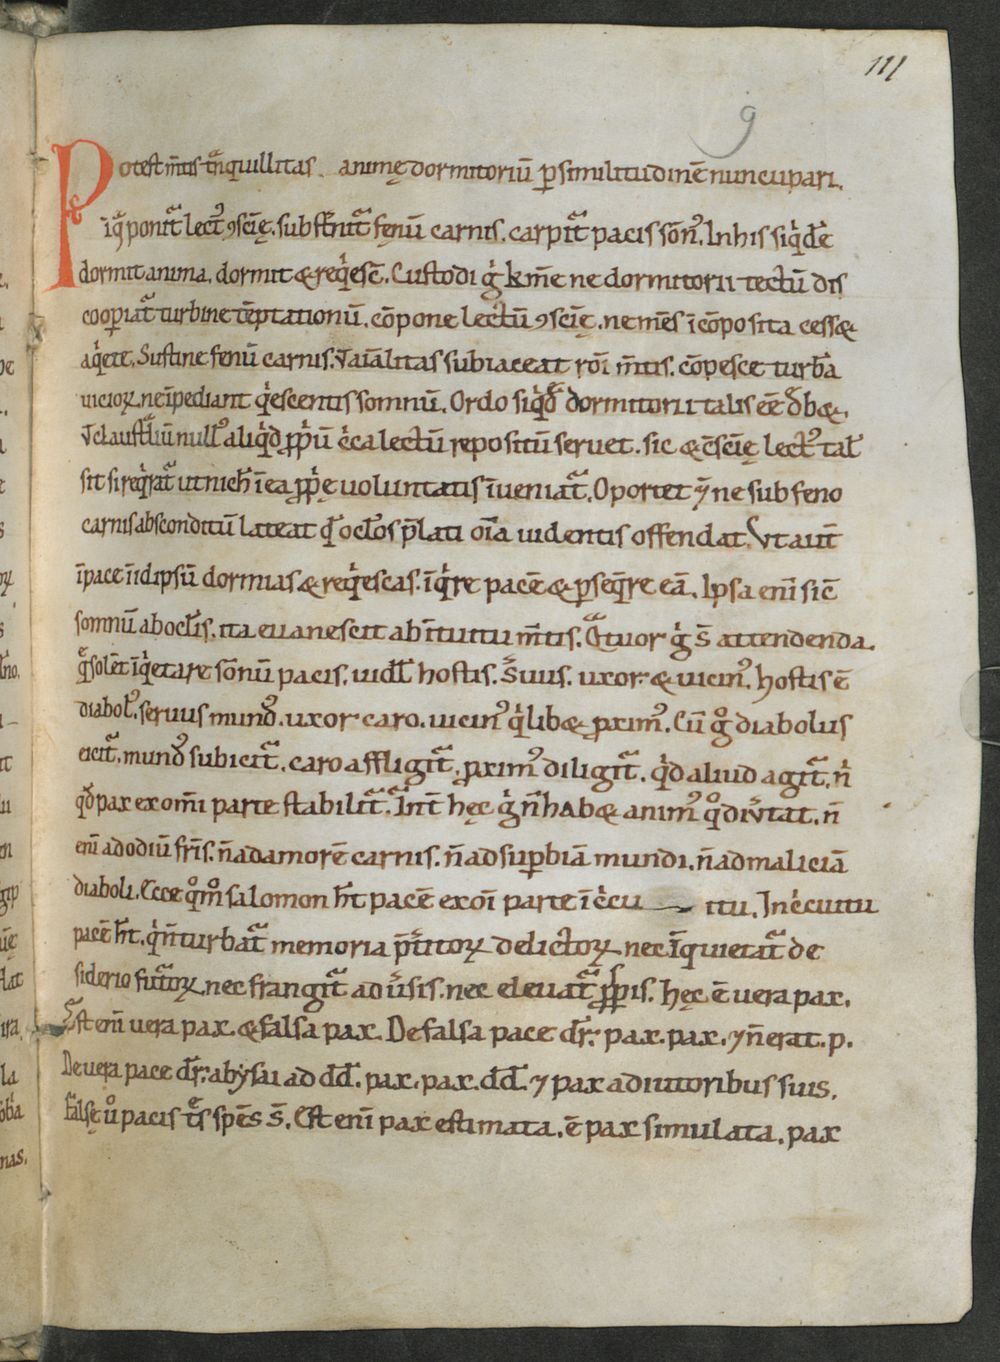 111
9
Potest m̄tis tn̄quillitas. animę dormitoriū ꝑ similitudinē nuncupari.
īq̄ ponit̄ lectꝰ ꝯscię. substn̄it̄ fęnū carnis. carpit̄ pacis sōnꝰ. In his siq̇dē
dormit anima. dormit & req̇esc̄. Custodi g̊ km̄e ne dormitorii tectū dis
cooꝑiat̄ turbine tēptationū. cōpone lectū ꝯscię. ne mēs īcōposita cess&
aq̇ete. Sustine fenū carnis. Vt aīalitas subiaceat rōi m̄tis. cōpesce turbā
uicioꝝ. ne īpediant q̇escentis somnū. Ordo siq̇d̄ dormitorii talis eē d̄b&.
Vt claustl̄iū nullꝰ aliq̇d ꝓṗū c̄ca lectū repositū seruet. sic & ꝯscię lectꝰ tal̄
sit si reqrat̄ ut nich̄ īea ꝓṗę uoluntatis īueniat̄. Oportet ⁊ ne sub feno
carnis absconditū lateat qd̄ ocl̄os p̄lati oīa uidentis offendat. Vt aut̄
īpace īidipsū dormias & req̇escas. īq̇re pacē & ꝑseq̄re eā. Ipsa eni sic̄
somnū ab ocl̄is. ita euanescit ab ītuitu m̄tis. Q̄tuor g̊ s̄ attendenda.
q̄ solēt īq̇etare sōnū pacis. uidl̄ hostis. S̄uus. uxor. & uicinꝰ. hostis ē
diabolꝰ. seruus mundꝰ. uxor caro. uicinꝰ q̇lib& ꝓximꝰ. Cū g̊ diabolus
eicit̄. mundꝰ subicit̄. caro affligit̄. ꝓximꝰ diligit̄. q̇d aliud agit̄. n̊
qd̄ pax ex omī parte stabilit̄. Int̄ hęc g̊ n̄ hab& animꝰ q̊ diūtat. n̄
eni ad odiū fr̄is. n̄ ad amorē carnis. n̄ ad suꝑbiā mundi. n̄ ad maliciā
diaboli. Ecce q̊m̊ salomon h̄t pacē exoī parte ī c̊cu itu. In c̊cuitu
pacē h̄t. q̇n̄ turbat̄ memoria p̄t̄itoꝝ delictoꝝ. nec īquietat̄ de
siderio futūoꝝ. nec frangit̄ adūsis. nec eleuat̄ ꝓsp̄is. Hęc ē uera pax.
Est eni uera pax. & falsa pax. De falsa pace dr̄. pax. pax. ⁊ n̄ erat. p.
De uera pace dr̄. abysai ad dd̄. pax. pax. dd̄. ⁊ pax adiutoribus suis.
Falsę ů pacis tēs spēs s̄. Est eni pax estimata. ē pax simulata. pax